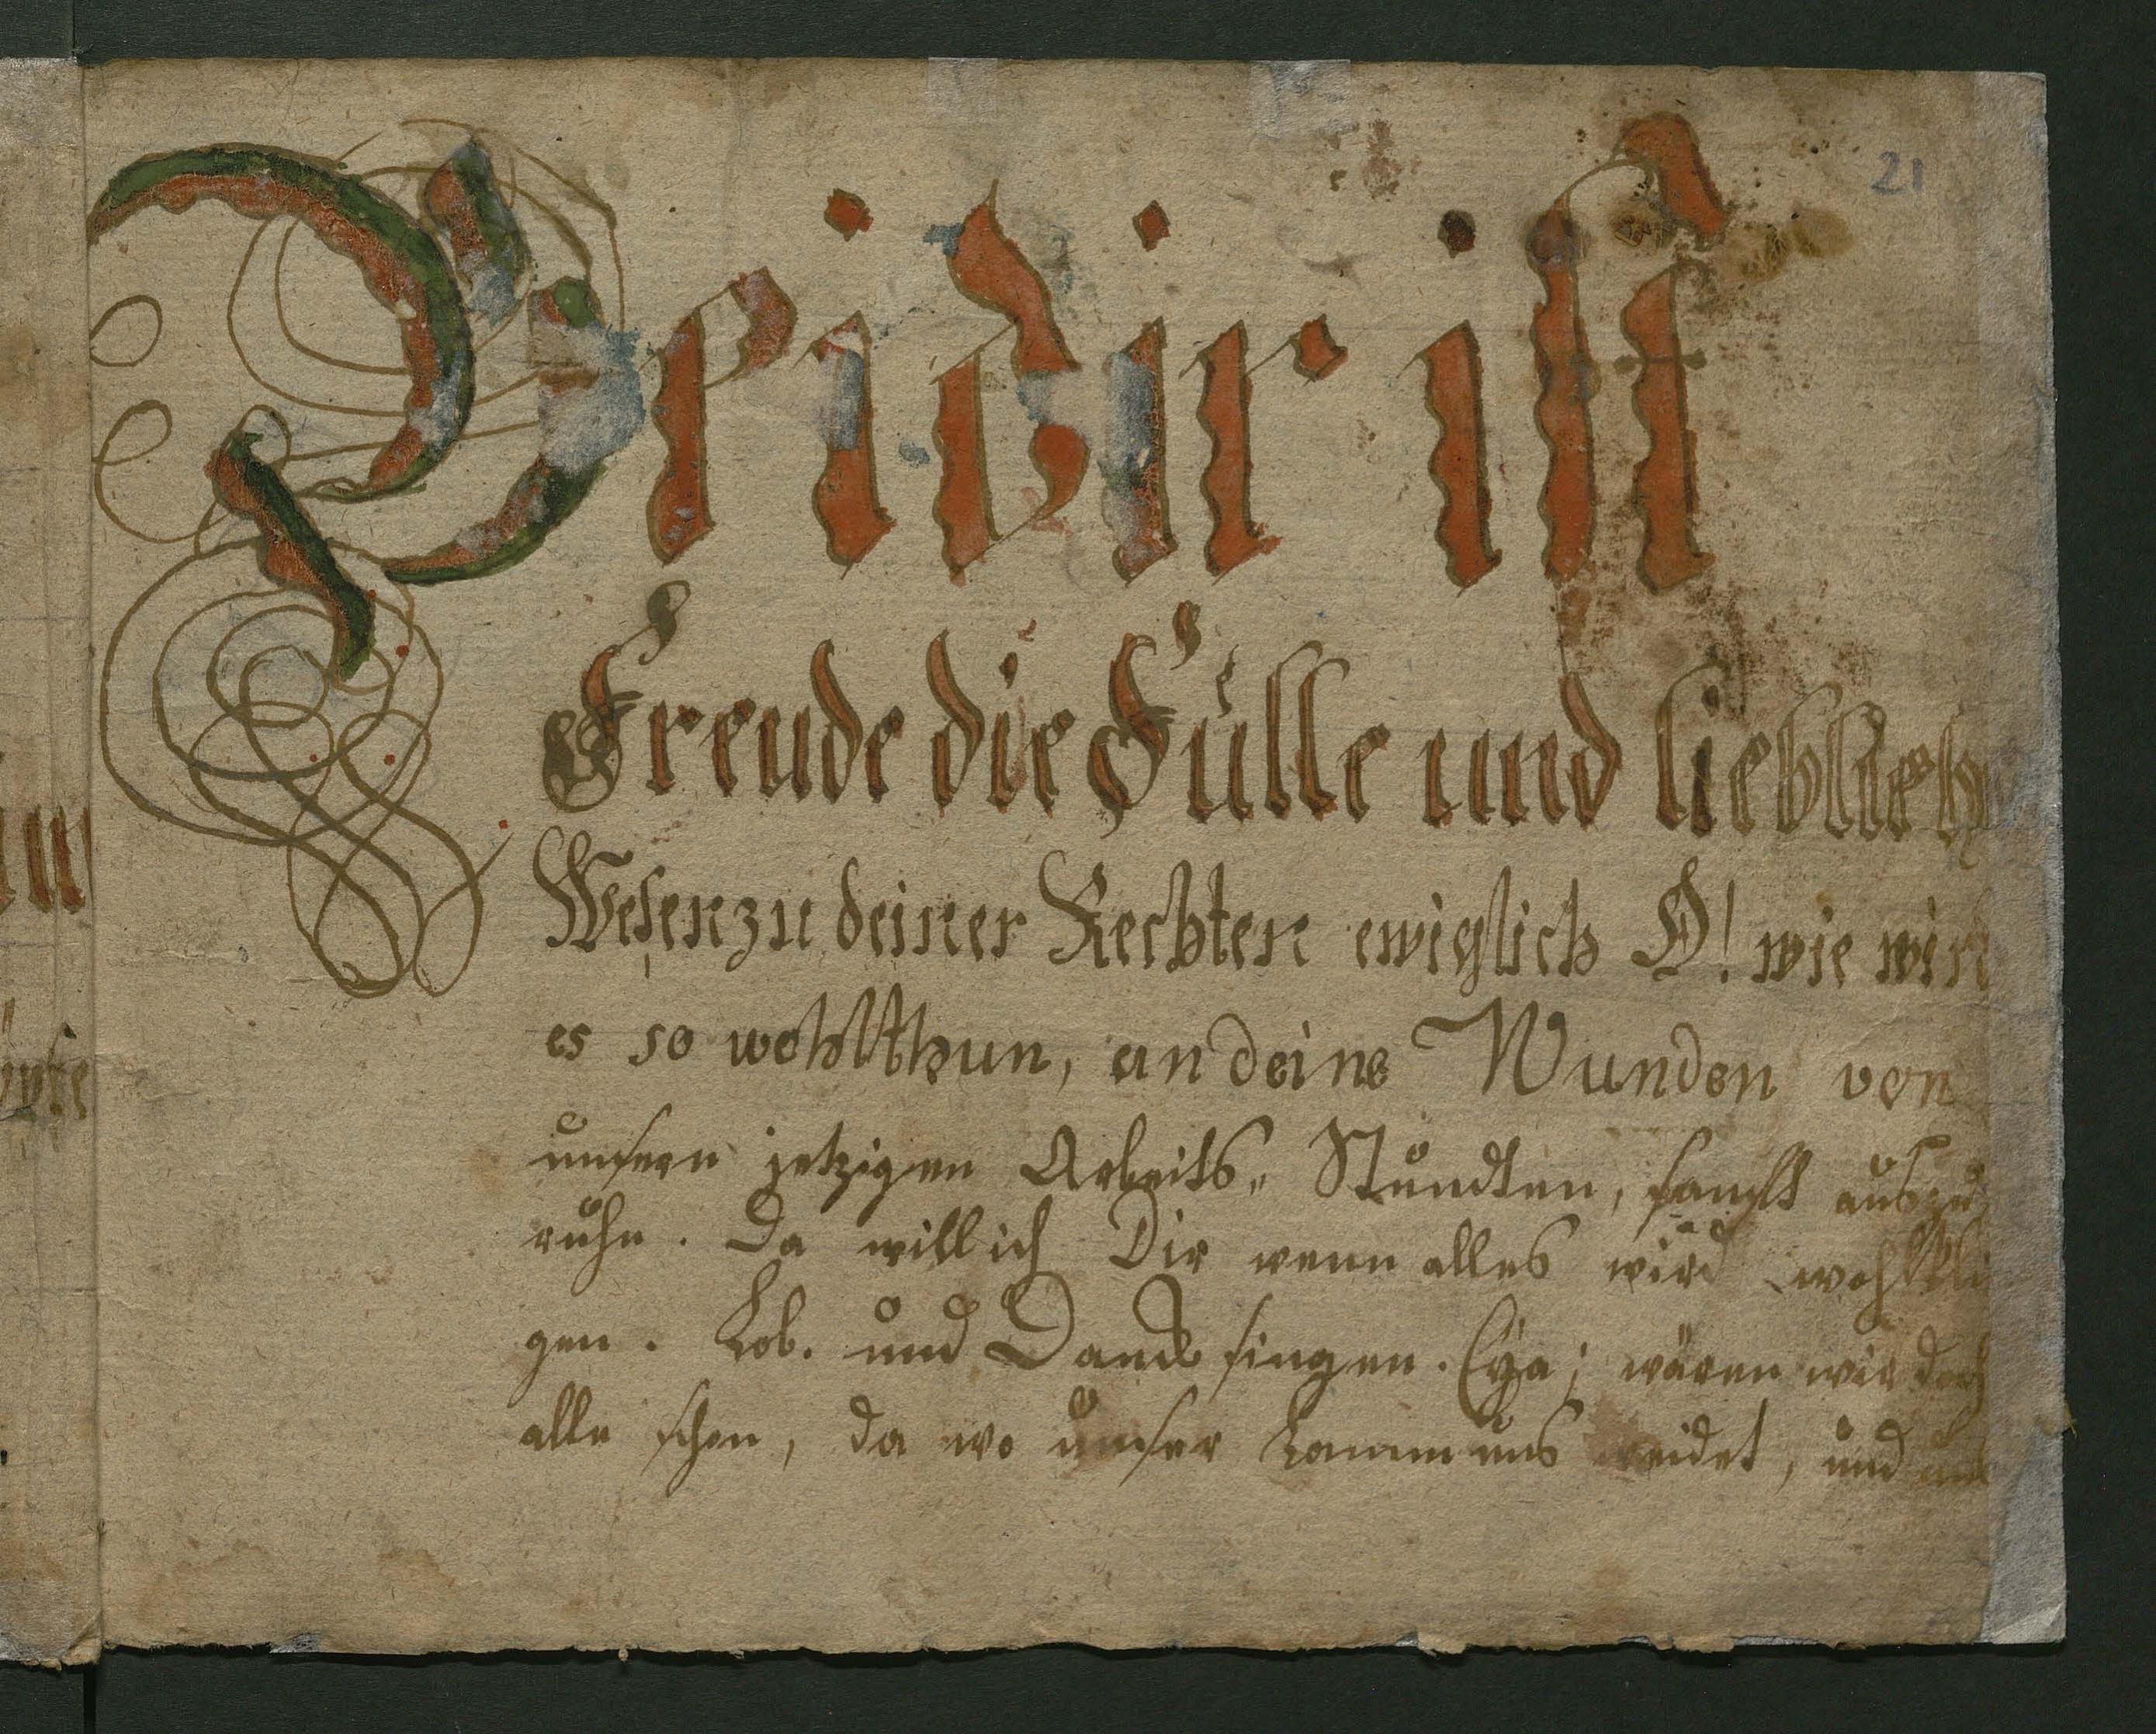 21
Bei dir ist
Freude die Fülle und lieblich
Wesen zu deiner Rechten ewiglich O! wie wird
es so wohlthun, an deine Wunden von
unsern jetzigen Arbeits„ Stundten, sanfft auszu
ruhn. Da will ich Dir wenn alles wird wohlklin
gen. Lob. und Danck singen. Eya; wären wir doch
alle schon, da wo unser Lamm uns weidet, und